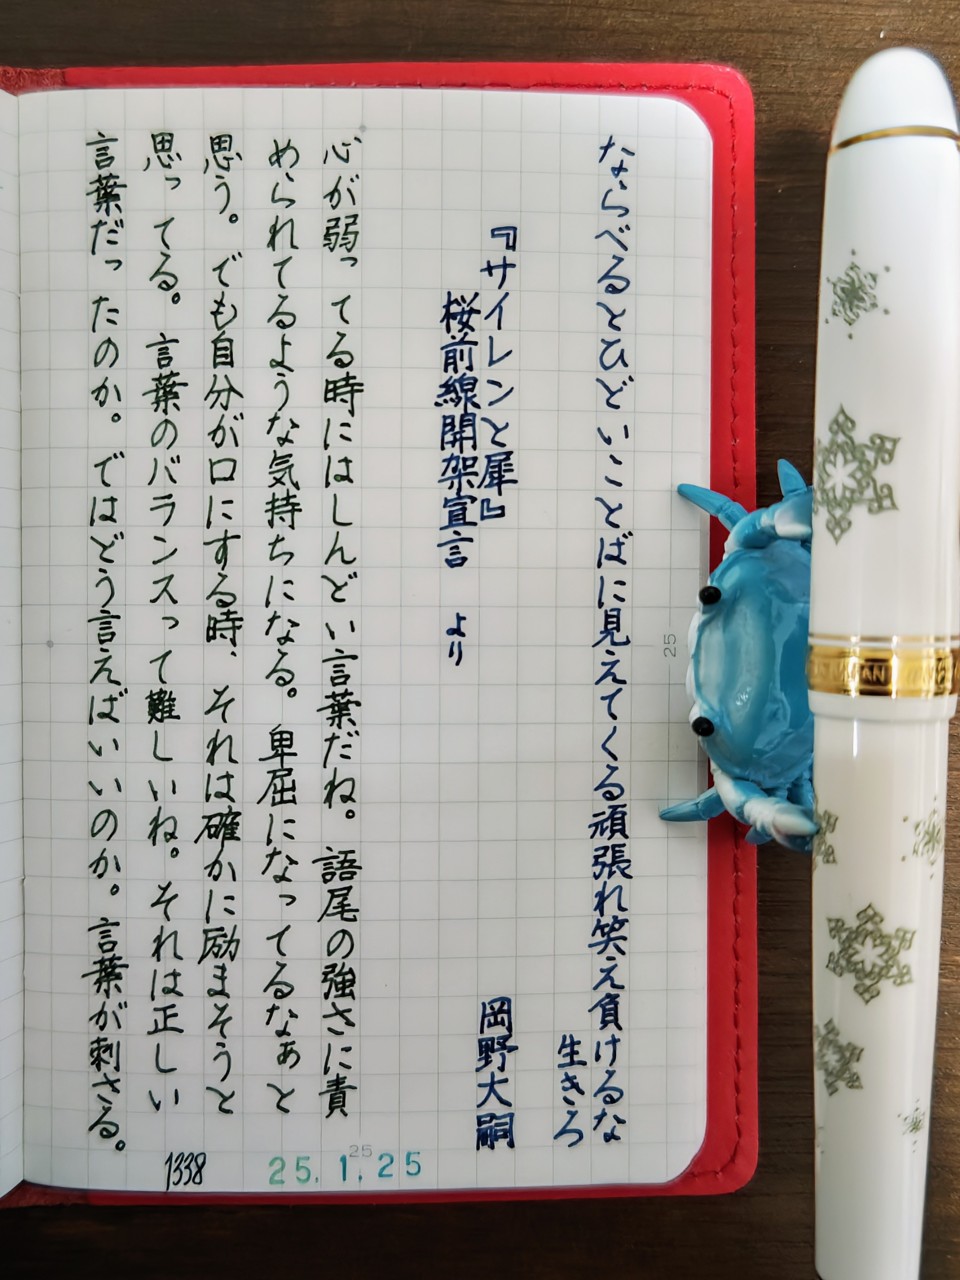 ならべるとひどいことばに見えてくる頑張れ笑え負けるな
生きろ
『サイレンと犀』
岡野大嗣
桜前線開架宣言 より
心が弱ってる時にはしんどい言葉だね。語尾の強さに責
められてるような気持ちになる。卑屈になってるなぁと
思う。でも自分が口にする時、それは確かに励まそうと
思ってる。言葉のバランスって難しいね。それは正しい
言葉だったのか。ではどう言えばいいのか。言葉が刺さる。
1338
25
25.1.25
25